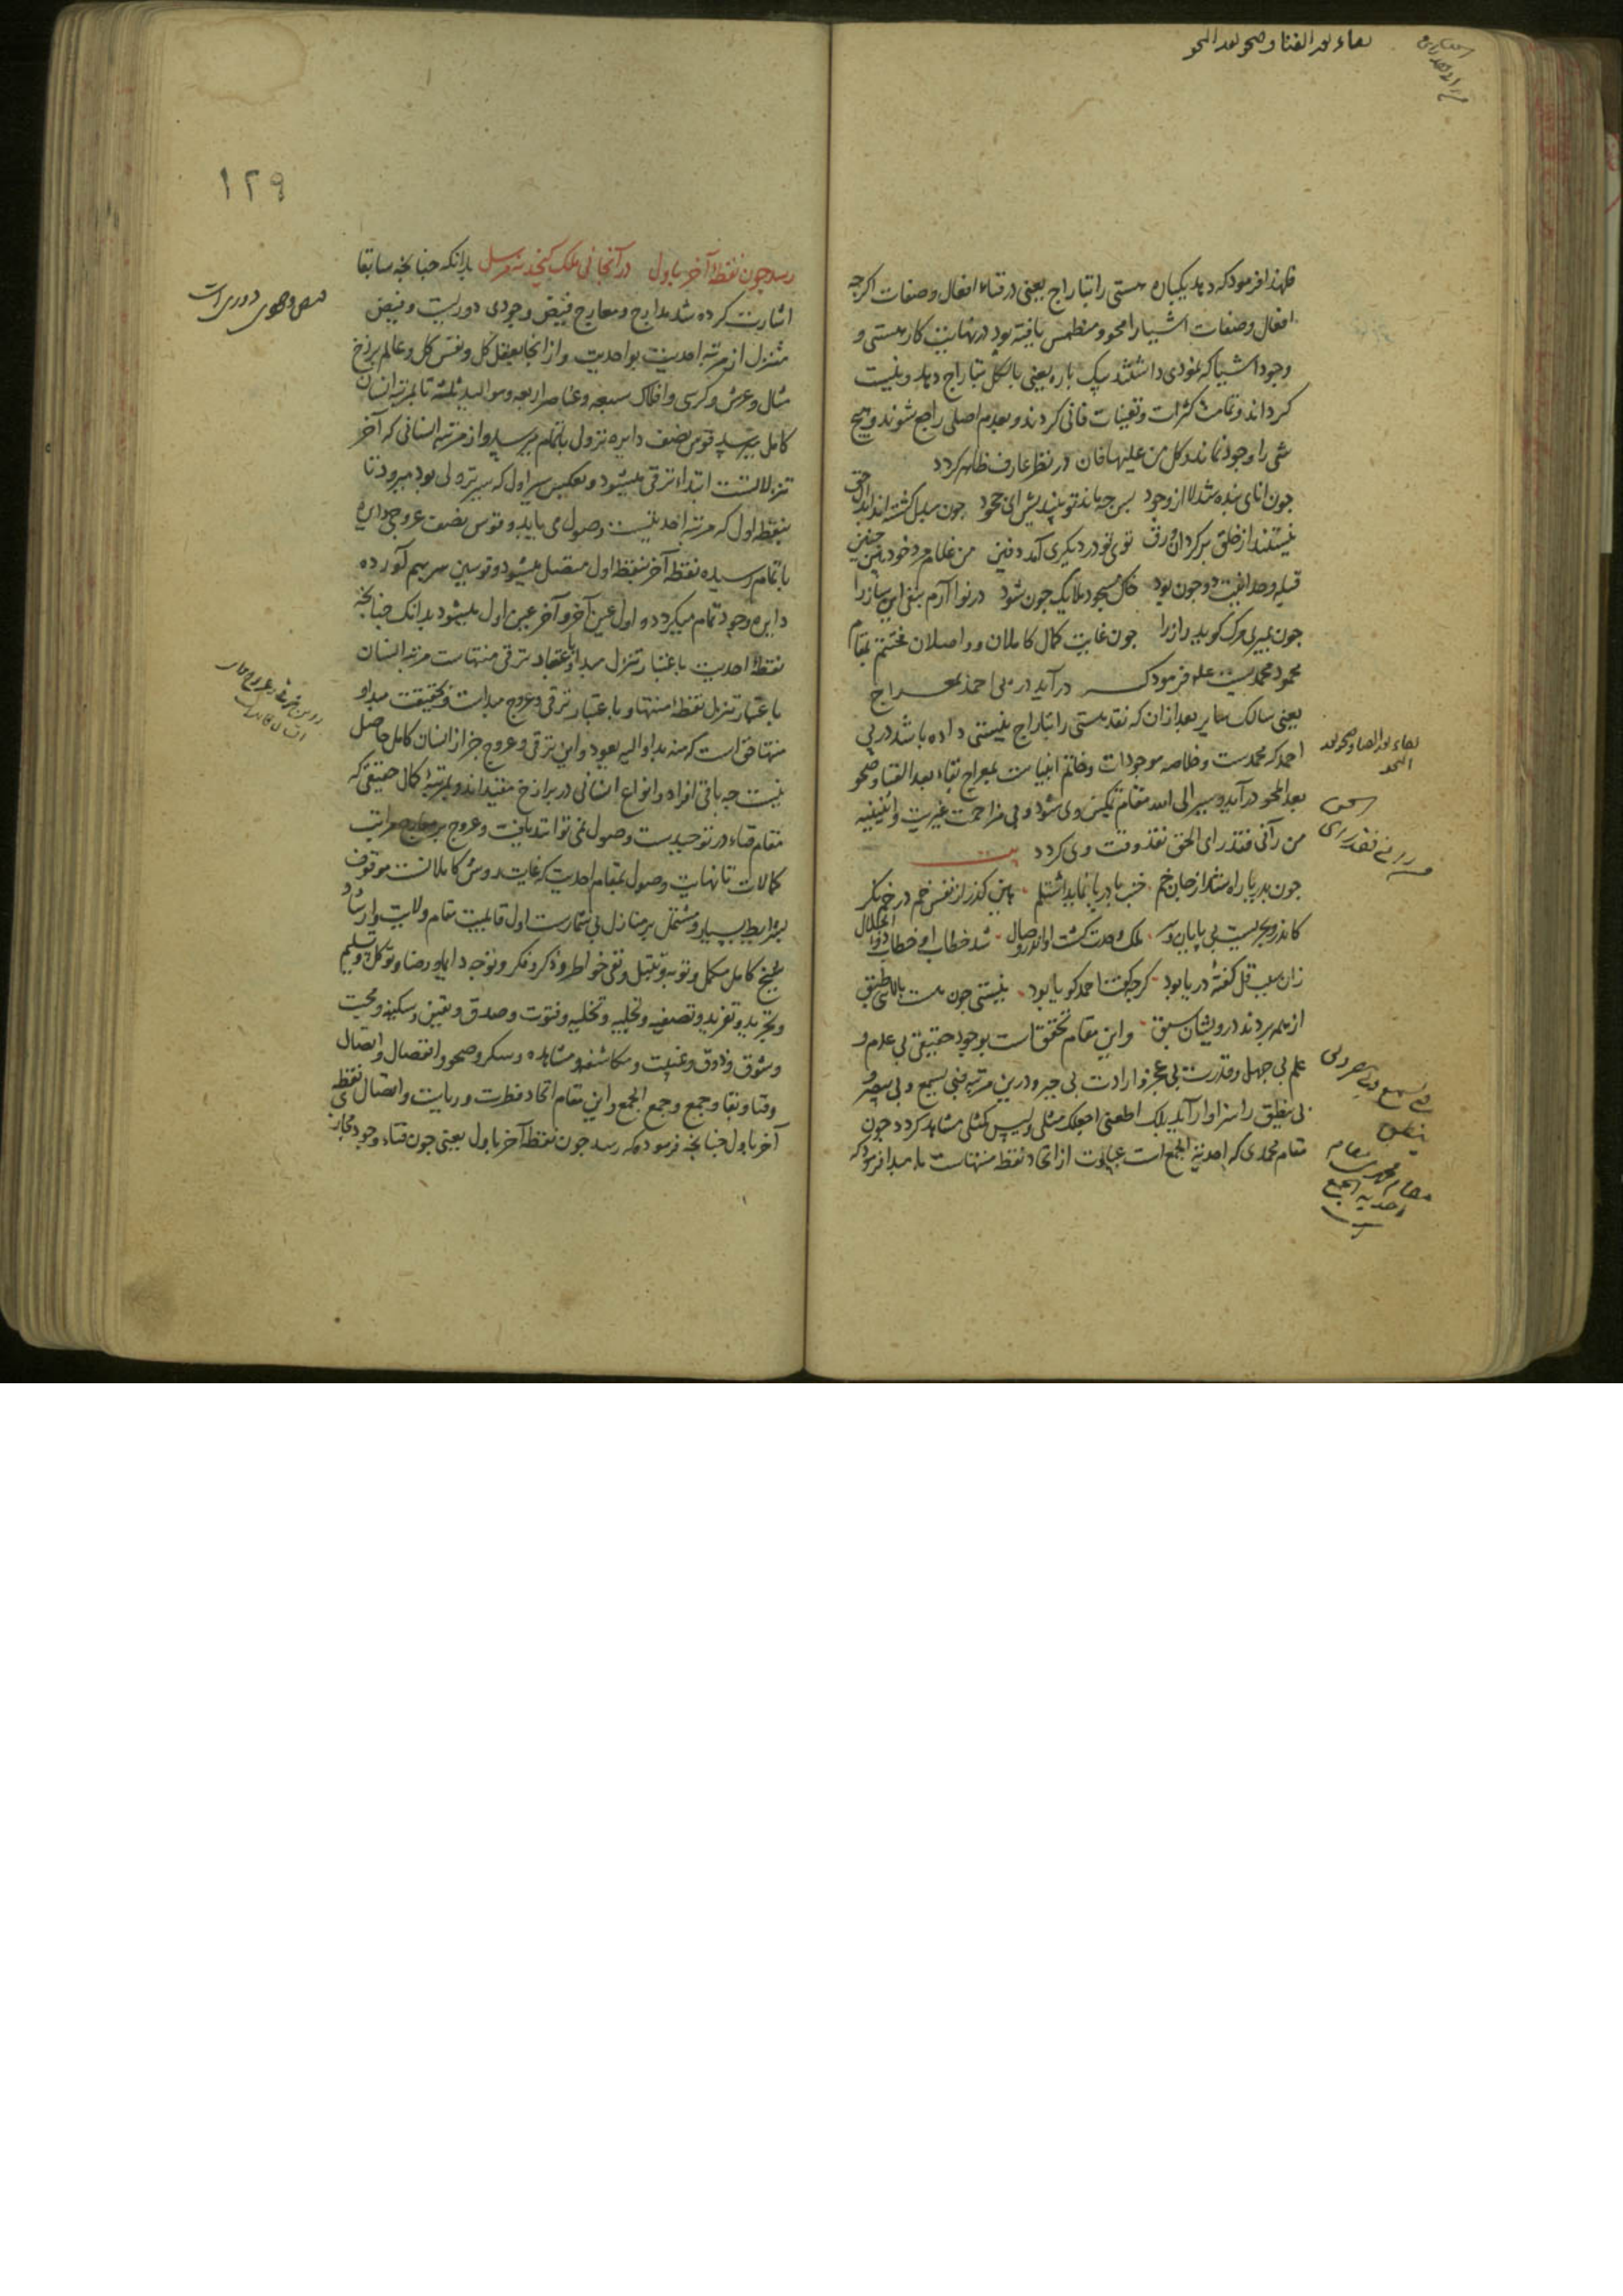 بقاء بعد الفنا و صحو بعد المحو
فلهذا فرمود که دهد یکباره هستی را بتاراج یعنی در فناء افعال و صفات اکرچه
افعال و صفات اشیا را محو و منطمس یافته بود در نهایت کار هستی و
وجود اشیا که نمودی داشتند بیک باره یعنی بالکل بتاراج دهد و نیست
کرداند و تمامت کثرات و تعینات فانی کردند و بعدم اصلی راجع شوند و هیچ
شی را وجود نماند و کل من علیها فان در نظر عارف ظاهر کردد
چون انای بنده شد لا از وجود پس چه ماند تو بیندیش ای جحود چون مبدل کشته اند ابدال حق
نیستند از خلق برکردان ورق توی تو در دیکری آمد دفین من غلام مرد خود بین چنین
قبله وحدانیت دو چون بود خاک مسجود ملایک چون شود در نوا آرم بنفی این ساز را
چون بمیری مرک کوید راز را چون غایت کمال کاملان و واصلان مختتم بمقام
محمود محمدیست علم فرمود که در آید در پی احمد بمعراج
یعنی سالک سایر بعد از آن که نقد هستی را بتاراج نیستی داده باشد در پی
احمد که محمدست و خلاصه موجودات و خاتم انبیاست بمعراج بقاء بعد الفنا و صحو
بعد المحو درآید و سیر الی الله مقام تمکین وی شود و بی مزاحمت غیریت و اثنینیه
من رآنی فقد رای الحق نقد وقت وی کردد بیت
چون بدریا راه شد از جان خم خنب با دریا نماید اشتلم هین کذر از نقش خم در خم نکر
کاندرو بحریست بی پایان و سر ملک وحدت کشت او را در وصال شد خطاب او خطاب ذوالجلال
زان سبب قل کفتهٔ دریا بود کرچه کفت احمد کویا بود نیستی چون هست بالایی طبق
از همه بردند درویشان سبق و این مقام تحقق است بوجود حقیقی بی عدم و
علم بی جهل و قدرت بی عجز و ارادت بی جبر و درین مرتبه فبی یسمع و بی یبصر و
بی ینطق راسزاوار آید بلک اطعنی اجعلک مثلی و لیس کمثلی مشاهد کردد چون
مقام محمدی که احدیة الجمع است عبارت از اتحاد نقطه منتهاست با مبدا فرمود که
بقاء بعد الفنا و صحو بعد المحو
من رانی فقد رای الحق
فبی یسمع و بی یبصر و بی ینطق
مقام محمدیست مقام احدیه الجمع
۱۲۹
رسد چون نقطهٔ آخر باول در آنجا نی ملک کنجد نه مرسل بدانکه چنانچه سابقا
اشارت کرده شد مدارج و معارج فیض وجودی دوریست و فیض
متنزل از مرتبه احدیت بواحدیت و از آنجا بعقل کل و نفس کل و عالم برزخ
مثال و عرش و کرسی و افلاک سبعه و عناصر اربعه و موالید ثلثه تا بمرتبه انسان
کامل میرسد و قوس نصف دایره نزول باتمام میرسد و از مرتبه انسانی که آخر
تنزلاتست ابتداء ترقی میشود و بعکس سیر اول که سیر نزولی بود میرود تا
بنقطه اول که مرتبه احدیتست وصول می یابد و قوس نصف عروجی دایره
باتمام رسیده نقطه آخر بنقطه اول متصل میشود و قوسین سر بهم آورده
دایره وجود تمام میکردد و اول عین آخر و آخر عین اول میشود بدانک چنانچه
نقطه احدیت باعتبار تنزل مبدا و باعتبار ترقی منتهاست مرتبه انسان
باعتبار تنزل نقطه منتها و باعتبار ترقی و عروج مبداست و بحقیقت مبدا و
منتها حق است که منه بدا و الیه یعود و این ترقی و عروج جز از انسان کامل حاصل
نیست چه باقی افراد و انواع انسانی در برازخ مقید اند و بمرتبهٔ کمال حقیقی که
مقام فناء در توحیدست وصول نمی توانند یافت و عروج بر معارج مراتب
کمالات تا نهایت وصول بمقام احدیت که غایت روش کاملانست موقوف
بشرایط بسیار و مشتمل بر منازل بی شمارست اول قابلیت مقام ولایت و ارشاد
شیخ کامل مکمل و توبه و تبتل و نفی خواطر و ذکر و فکر و توجه دایم و رضا و توکل و تسلیم
و تجرید و تفرید و تصفیه و تجلیه و تخلیه و فتوت و صدق و یقین و سکینه و محبت
و شوق و ذوق و غیبت و مکاشفه و مشاهده و سکر و صحو و انفصال و اتصال
و فنا و بقا و جمع و جمع الجمع و این مقام اتحاد فطرت و ربایت و اتصال نقطه
آخر باول چنانچه فرموده که رسد چون نقطه آخر باول یعنی چون فناء وجود مجازی
فیض وجودی دوری است